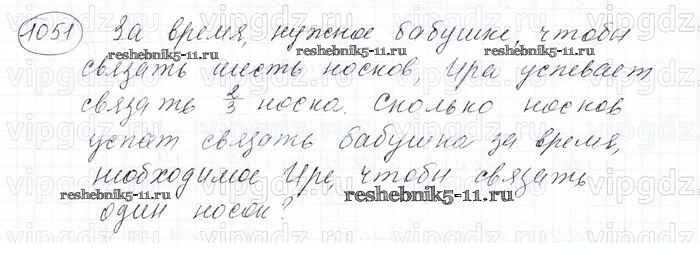 1051 За время, нужное бабушке, чтобы
reshebnik5-11.ru reshebnik5-11.ru
связать шесть носков, Ира успевает
связать 2/3 носка. Сколько носков
успат связать бабушка за время,
необходимое Ире, чтобы связать
reshebnik5-11.ru reshebnik5-11.ru
один носок?
reshebnik5-11.ru
vipgdz